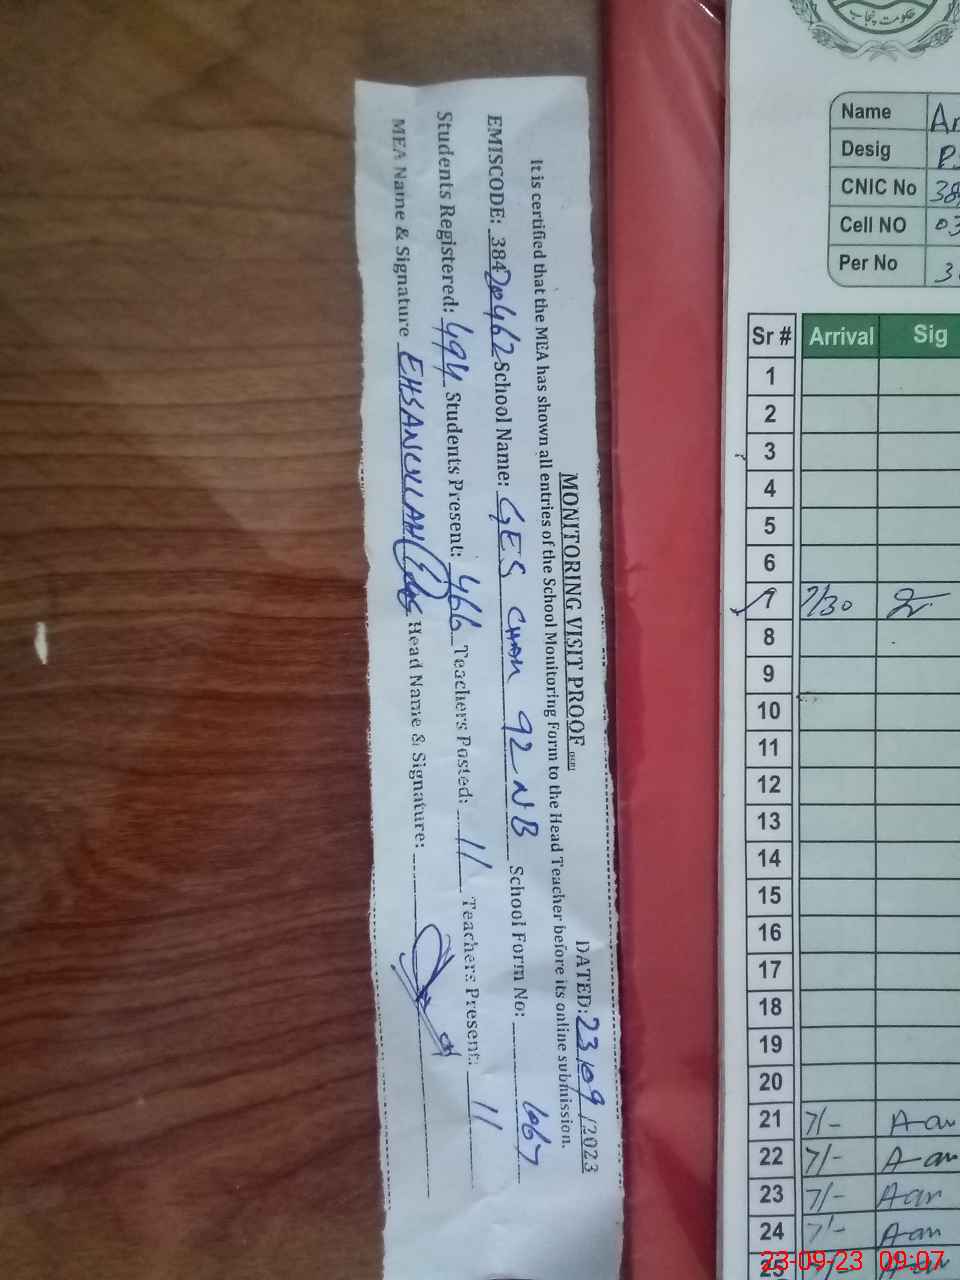 MONITORING VISIT PROOF
DATED: 23/09/2023
It is certified that the MEA has shown all entries of the School Monitoring Form to the Head Teacher before its online submission.
EMISCODE: 38420462 School Name: GES CHAK 92 NB School Form No: 1067
Students Registered: 494 Students Present: 466 Teachers Posted: 11 Teachers Present: 11
MEA Name & Signature EHSANULLAH Head Name & Signature:
حکومت پنجاب
Name
Desig
CNIC No 38
Cell NO 03
Per No 3
Sr # Arrival Sig
1
2
3
4
5
6
7 7/30
8
9
10
11
12
13
14
15
16
17
18
19
20
21 7/- Aan
22 7/- Aan
23 7/- Aan
24 7/- Aan
25
23-09-23 09:07